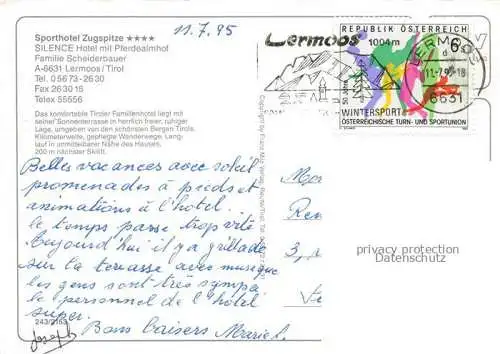 11.7.95
Sporthotel Zugspitze ★★★★
SILENCE Hotel mit Pferdealmhof
Familie Scheiderbauer
A-6631 Lermoos/Tirol
Tel. 05673-2630
Fax 263015
Telex 55556
Das komfortable Tiroler Familienhotel liegt mit
seiner Sonnenterrasse in herrlich freier, ruhiger
Lage, umgeben von den schönsten Bergen Tirols.
Kilometerweite, gepflegte Wanderwege, Lang-
lauf in unmittelbarer Nähe des Hauses,
200 m nächster Skilift.
Belles vacances avec soleil
promenades à pieds et
animations à l'hotel.
le temps passe trop vite
Aujourd'hui il y a grillade
sur la terasse avec musique
les gens sont très sympa
le personnel de l'hôtel
super.
Bons baisers Mariel.
Joseph
243/2163
REPUBLIK ÖSTERREICH
Lermoos
1004m
6
LERMOOS
11.-7.95-18
6631
50 Jahre
WINTERSPORT
ÖSTERREICHISCHE TURN- UND SPORTUNION
M
Ren
3,
privacy protection
Datenschutz